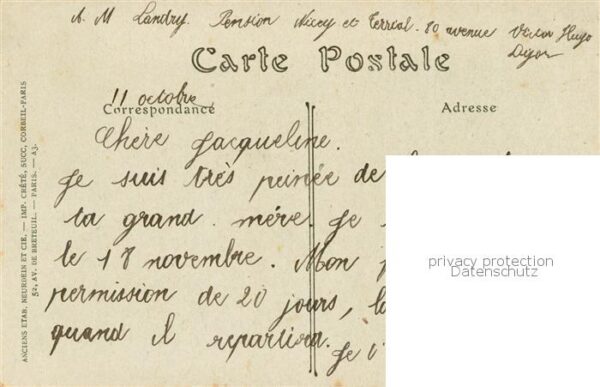 A. M Landry. Pension Nicey et Terreal. 80 avenue Victor Hugo
Dijon
Carte Postale
11 octobre
Correspondance
Adresse
Chère Jacqueline.
Je suis très peinée de
ta grand mère. Je
le 18 novembre. Mon
permission de 20 jours,
quand il repartira.
Je t'
ANCIENS ETAB. NEURDEIN ET CIE. — IMP. CRÉTÉ, SUCC, CORBEIL-PARIS
52, AV. DE BRETEUIL. — PARIS. — A3.
privacy protection
Datenschutz